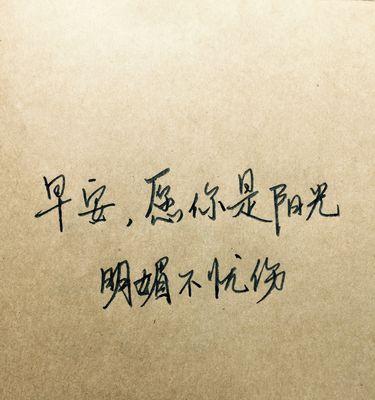 早安，愿你是阳光
明媚不忧伤